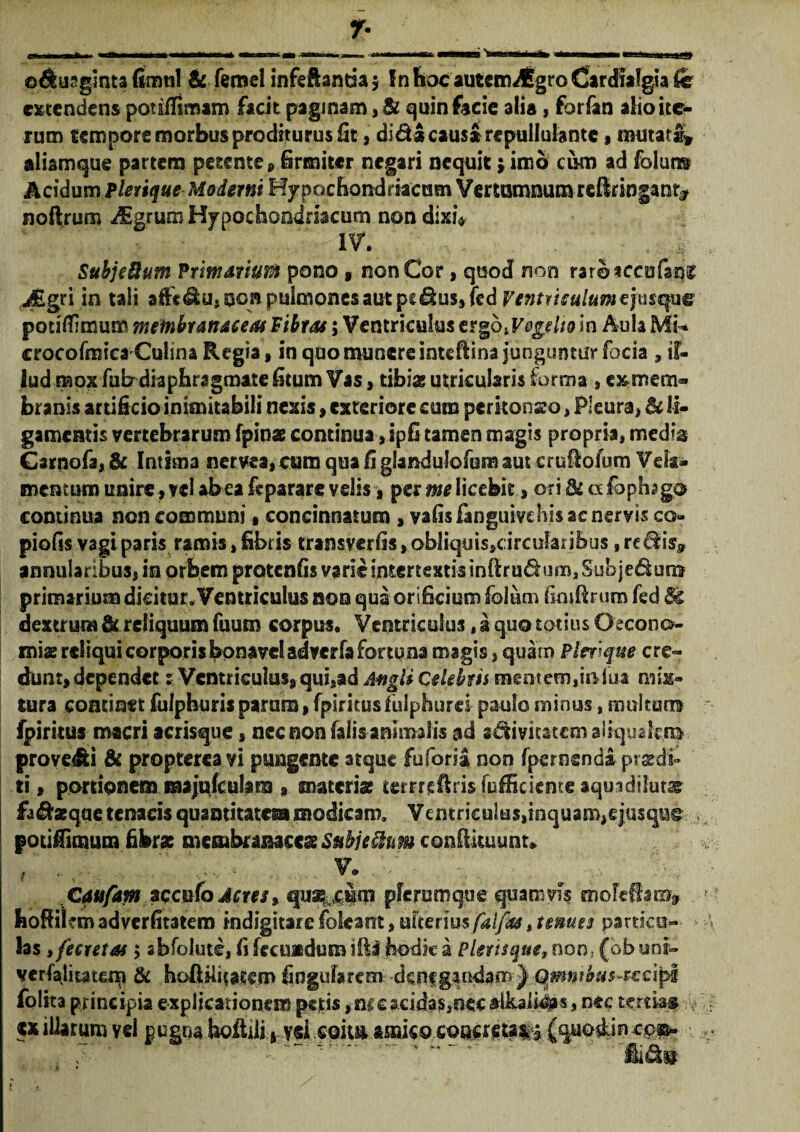 7.
octuaginta simul & semel infestantia; In hoc autem Ægro Cardialgia se
extendens potissimam facit paginam, & quin facie alia, forsan alio ite-
rum tempore morbus proditurus sit, dictâ causâ repullulante, mutatâ,
aliamque partem petente, firmiter negari nequit; imò cùm ad solum
Acidum Plerique Moderni Hypochondriacum Vertumnum restringant,
nostrum Ægrum Hypochondriacum non dixi.
IV.
Subjectum Primarium pono, non Cor, quod non rarò accusant
Ægri in tali affectu, non pulmones aut pectus, sed Ventriculum ejusque
potissimum membranaceas Fibras; Ventriculus ergò, Vogelio in Aula Mi-
crocosmica Culina Regia, in quo munere intestina junguntur socia, il-
lud mox sub diaphragmate situm Vas, tibiæ utricularis forma, ex mem-
branis artificio inimitabili nexis, exteriore cum peritonæo, Pleura, & li-
gamentis vertebrarum spinæ continua, ipsi tamen magis propria, media
Carnosa, & Intima nervea, cum qua si glandulosum aut crustosum Vela-
mentum unire, vel ab ea separare velis, per me licebit, ori & œsophago
continua non communi, concinnatum, vasis sanguivehis ac nervis co-
piosis vagi paris ramis, fibris transversis, obliquis, circularibus, rectis,
annularibus, in orbem protensis variè intertextis instructum, Subjectum
primarium dicitur. Ventriculus non quà orificium solùm sinistrum sed &
dextrum & reliquum suum corpus. Ventriculus, à quo totius Oecono-
miæ reliqui corporis bona vel adversa fortuna magis, quàm Plerique cre-
dunt, dependet: Ventriculus, qui, ad Angli Celebris mentem, in sua mix-
tura continet sulphuris parum, spiritus sulphurei paulo minus, multum
spiritus macri acrisque, nec non salis animalis ad activitatem aliqualem
provecti & propterea vi pungente atque fusoriâ non spernendâ prædi-
ti, portionem majusculam, materiæ terrestris sufficiente aqua dilutæ
factæque tenacis quantitatem modicam. Ventriculus, inquam, ejusque
potissimum fibræ membranaceæ Subjectum constituunt.
V.
Causam accuso Acres, quæ, cùm plerumque quamvis molestam,
hostilem adversitatem indigitare soleant, ulterius falsas, tenues particu-
las, secretas; absolutè, si secundum istâ hodie à Plerisque, non, (ob uni-
versalitatem & hostilitatem singularem denegandam) Omnibus recipi
solita principia explicationem petis, nec acidas, nec alkalicas, nec tertias
ex illarum vel pugna hostili, vel coitu amico concretas; (quod in con-
flictu